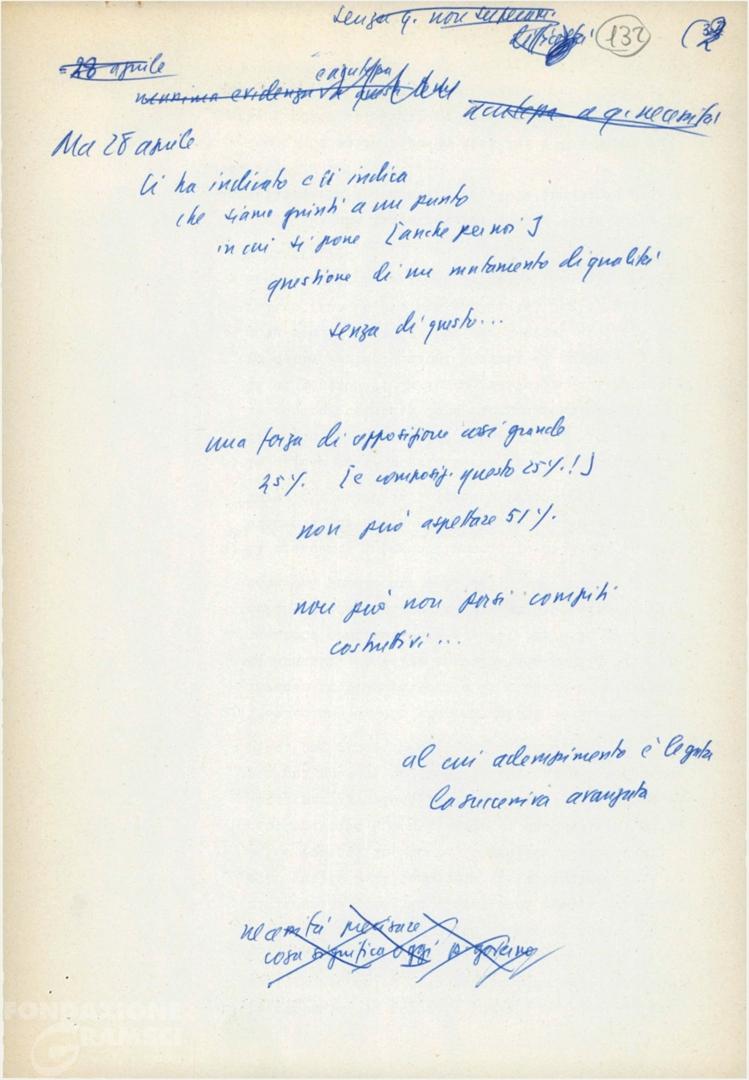 senza q. non superiam.
difficoltà
132
32
28 aprile
nennima evidenza questo
a q. necessità
Ma 28 aprile
Ci ha indicato e ci indica
che siamo giunti a un punto
in cui si pone [anche per noi]
questione di un mutamento di qualità
senza di questo...
una forza di opposizione così grande
25%. [e composiz. questo 25%.!]
non può aspettare 51%.
non può non porsi compiti
costruttivi...
al cui adempimento è legata
la successiva avanzata
necessità precisare
cosa significa oggi p. governo
FONDAZIONE
GRAMSCI